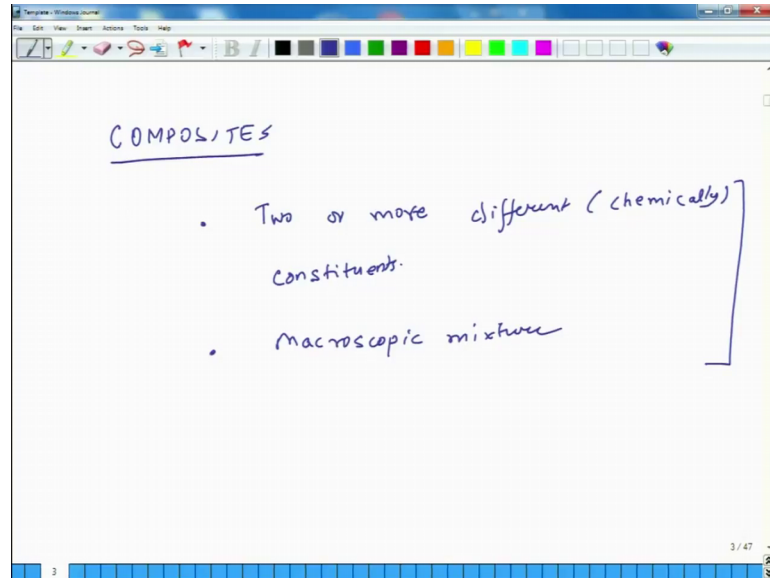 Template - Windows Journal
File Edit View Insert Actions Tools Help
B I
COMPOSITES
• Two or more different (chemically)
constituents.
• Macroscopic mixture
3 / 47
3